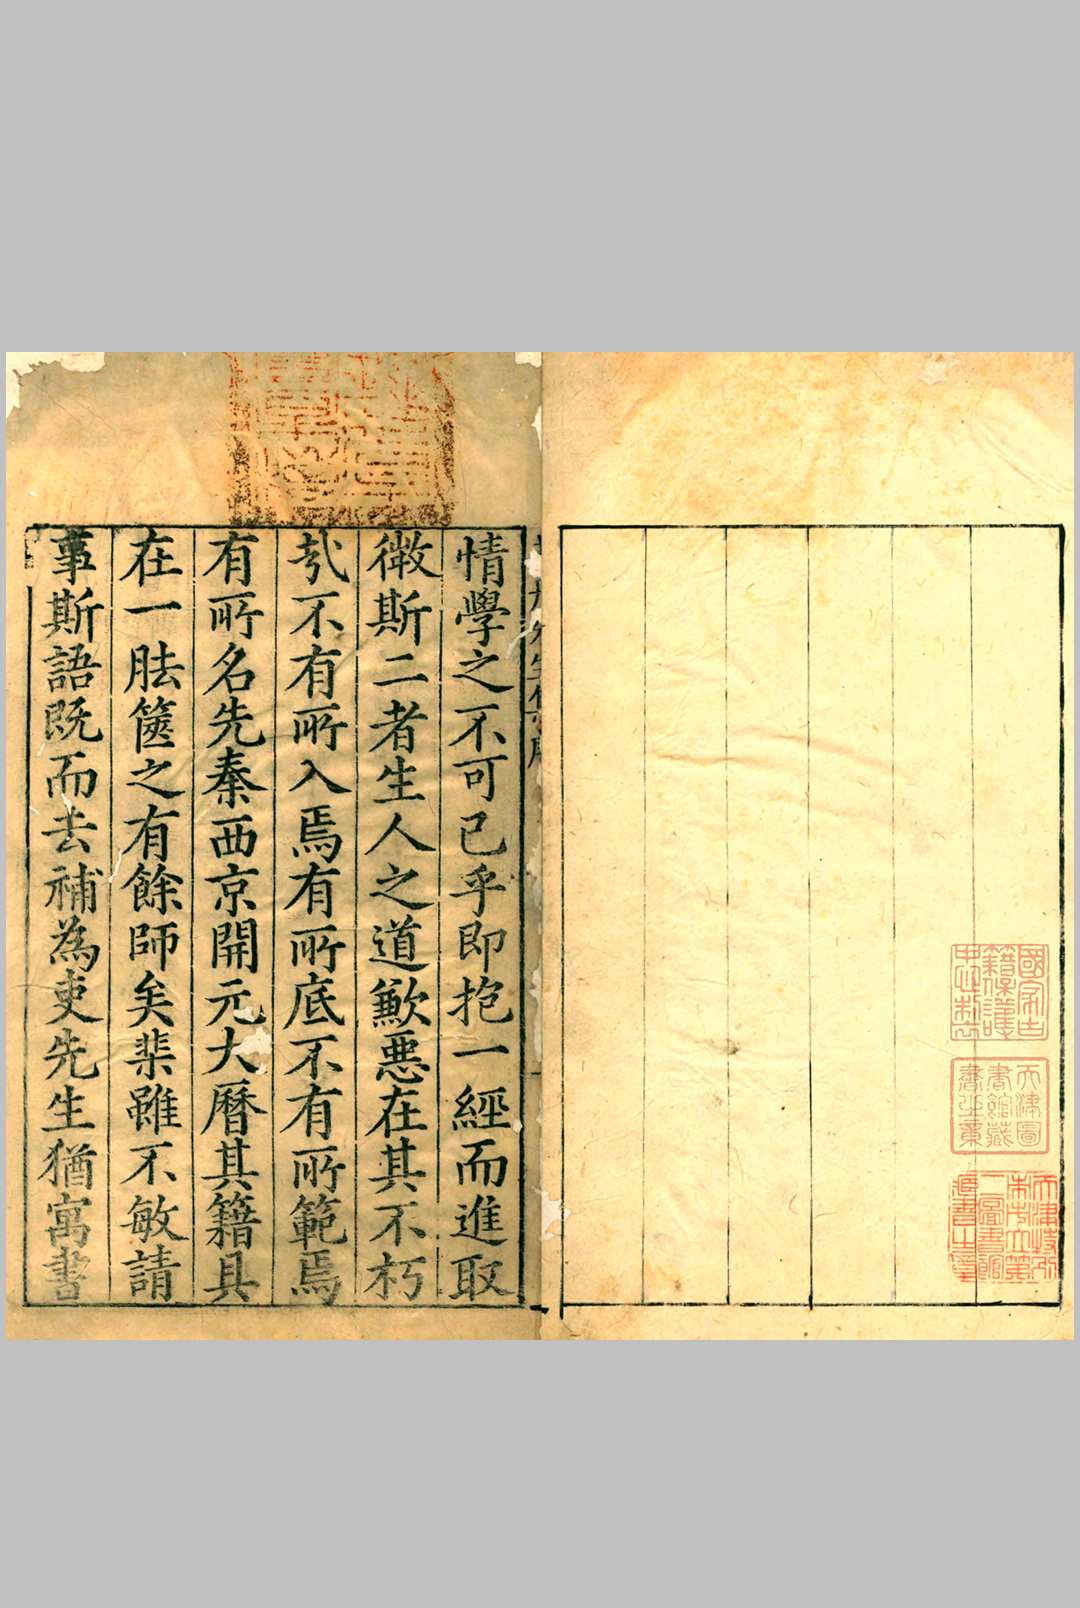 國家古
籍保護
中心制
天津圖
書館藏
書之章
情學之不可已乎即抱一經而進取
微斯二者生人之道歉惡在其不朽
㢤不有所入焉有所底不有所範焉
有所名先秦西京開元大曆其籍具
在一胠篋之有餘師矣棐雖不敏請
事斯語既而去補為吏先生猶寓書